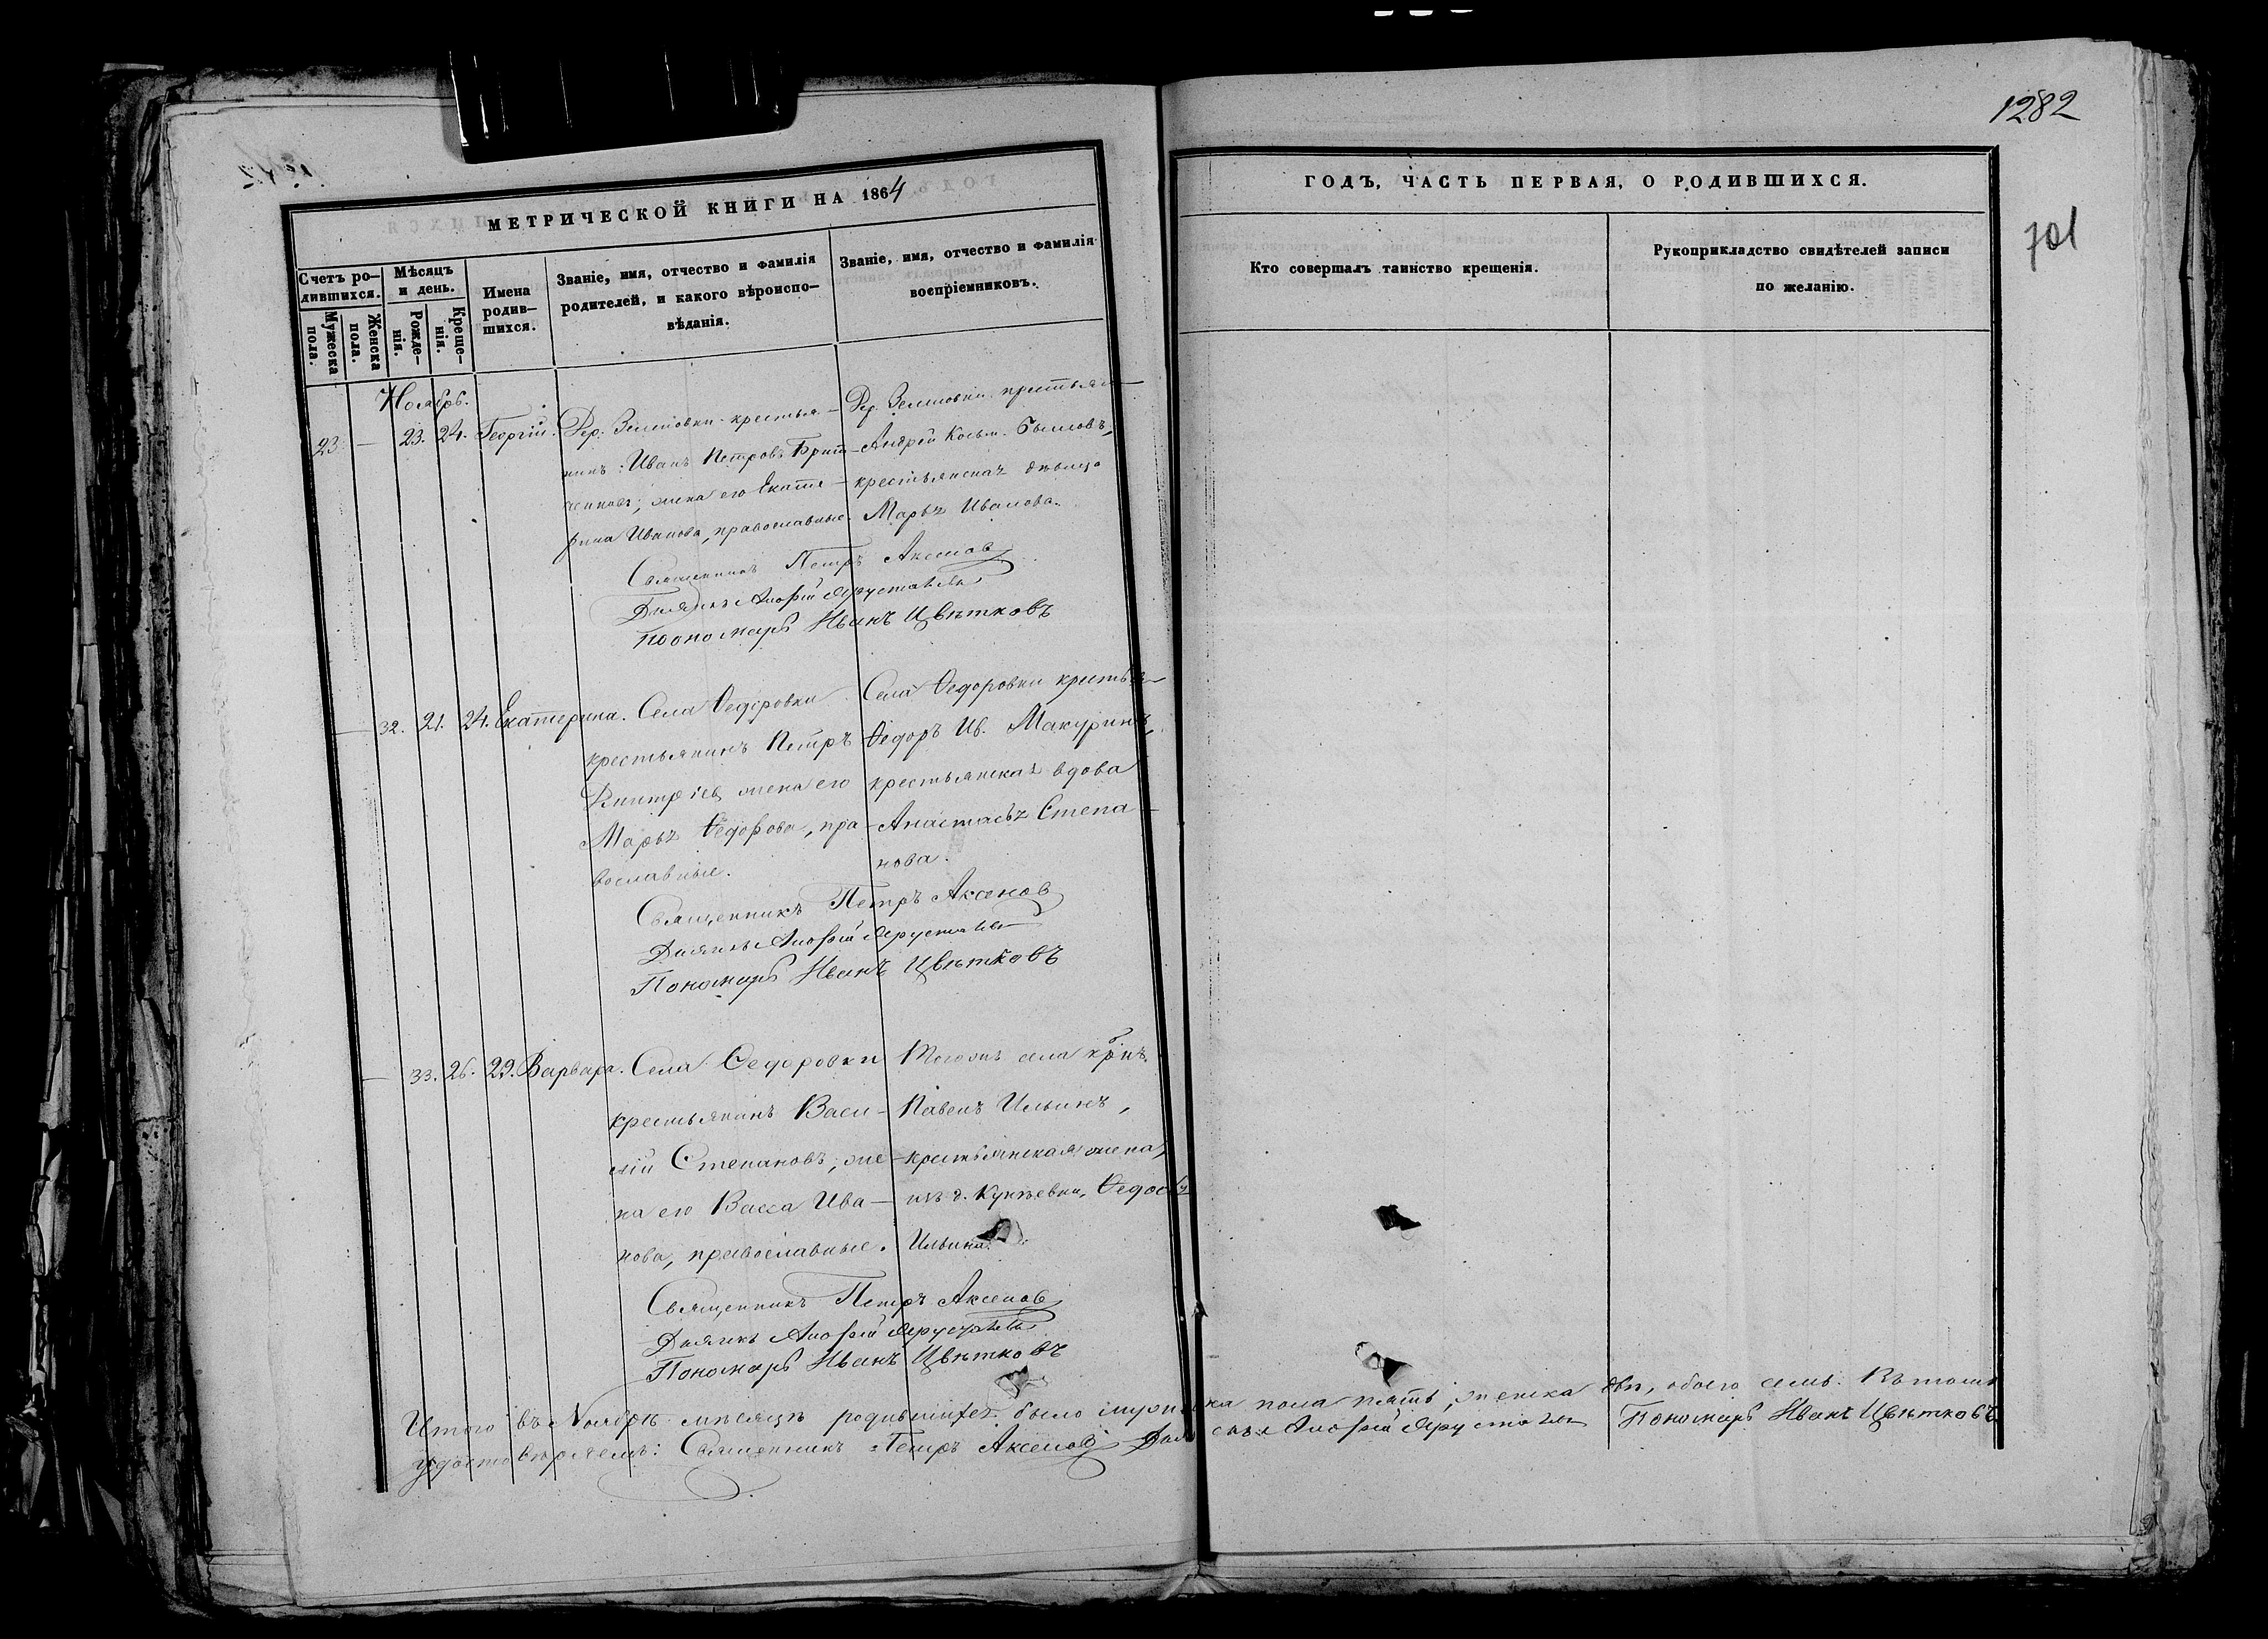 1282
701
МЕТРИЧЕСКОЙ КНИГИ НА 1864
ГОДЪ, ЧАСТЬ ПЕРВАЯ, О РОДИВШИХСЯ.
Счетъ ро-
дившихся.
Мужеска
пола.
Женска
пола.
Мѣсяцъ
и день.
Рожде-
нія.
Креще-
нія.
Имена
родив-
шихся.
Званіе, имя, отчество и фамилія
родителей, и какого вѣроиспо-
вѣданія.
Званіе, имя, отчество и фамилія
воспріемниковъ.
Кто совершалъ таинство крещенія.
Рукоприкладство свидѣтелей записи
по желанію.
Ноябрь.
23. — 23. 24. Георгій.
Дер. крестья-
нинъ: Иванъ Петровъ
жена его Екате-
рина Иванова, православные.
Дер.
Андрей Козьм.
крестьянская дѣвица
Марья Иванова.
Священникъ Петръ Аксенов
Дьячокъ
Пономарь Иванъ Цвѣтковъ
— 32. 21. 24. Екатерина.
Села Ѳедоровки
крестьянинъ Петръ
Дмитріев, жена его
Марья Ѳедорова, пра-
вославные.
Села Ѳедоровки крестья-
Ѳедоръ Ив. Макуринъ,
крестьянская вдова
Анастасья Степа-
нова.
Священникъ Петръ Аксенов
Дьячокъ
Пономарь Иванъ Цвѣтковъ
— 33. 26. 29. Варвара.
Села Ѳедоровки
крестьянинъ Васи-
лій Степановъ, же-
на его Васса Ива-
нова, православные.
Тогоже села крнъ.
Павелъ Ильинъ,
крестьянская жена,
изъ д. Ѳедосья
Ильина.
Священникъ Петръ Аксенов
Дьячокъ
Пономарь Иванъ Цвѣтковъ
Итого въ Ноябрѣ мѣсяцѣ родившихся было мужеска пола пять, женска двѣ, обоего семь. Въ томъ
удостовѣряемъ: Священникъ Петръ Аксенов Дьячокъ Пономарь Иванъ Цвѣтковъ